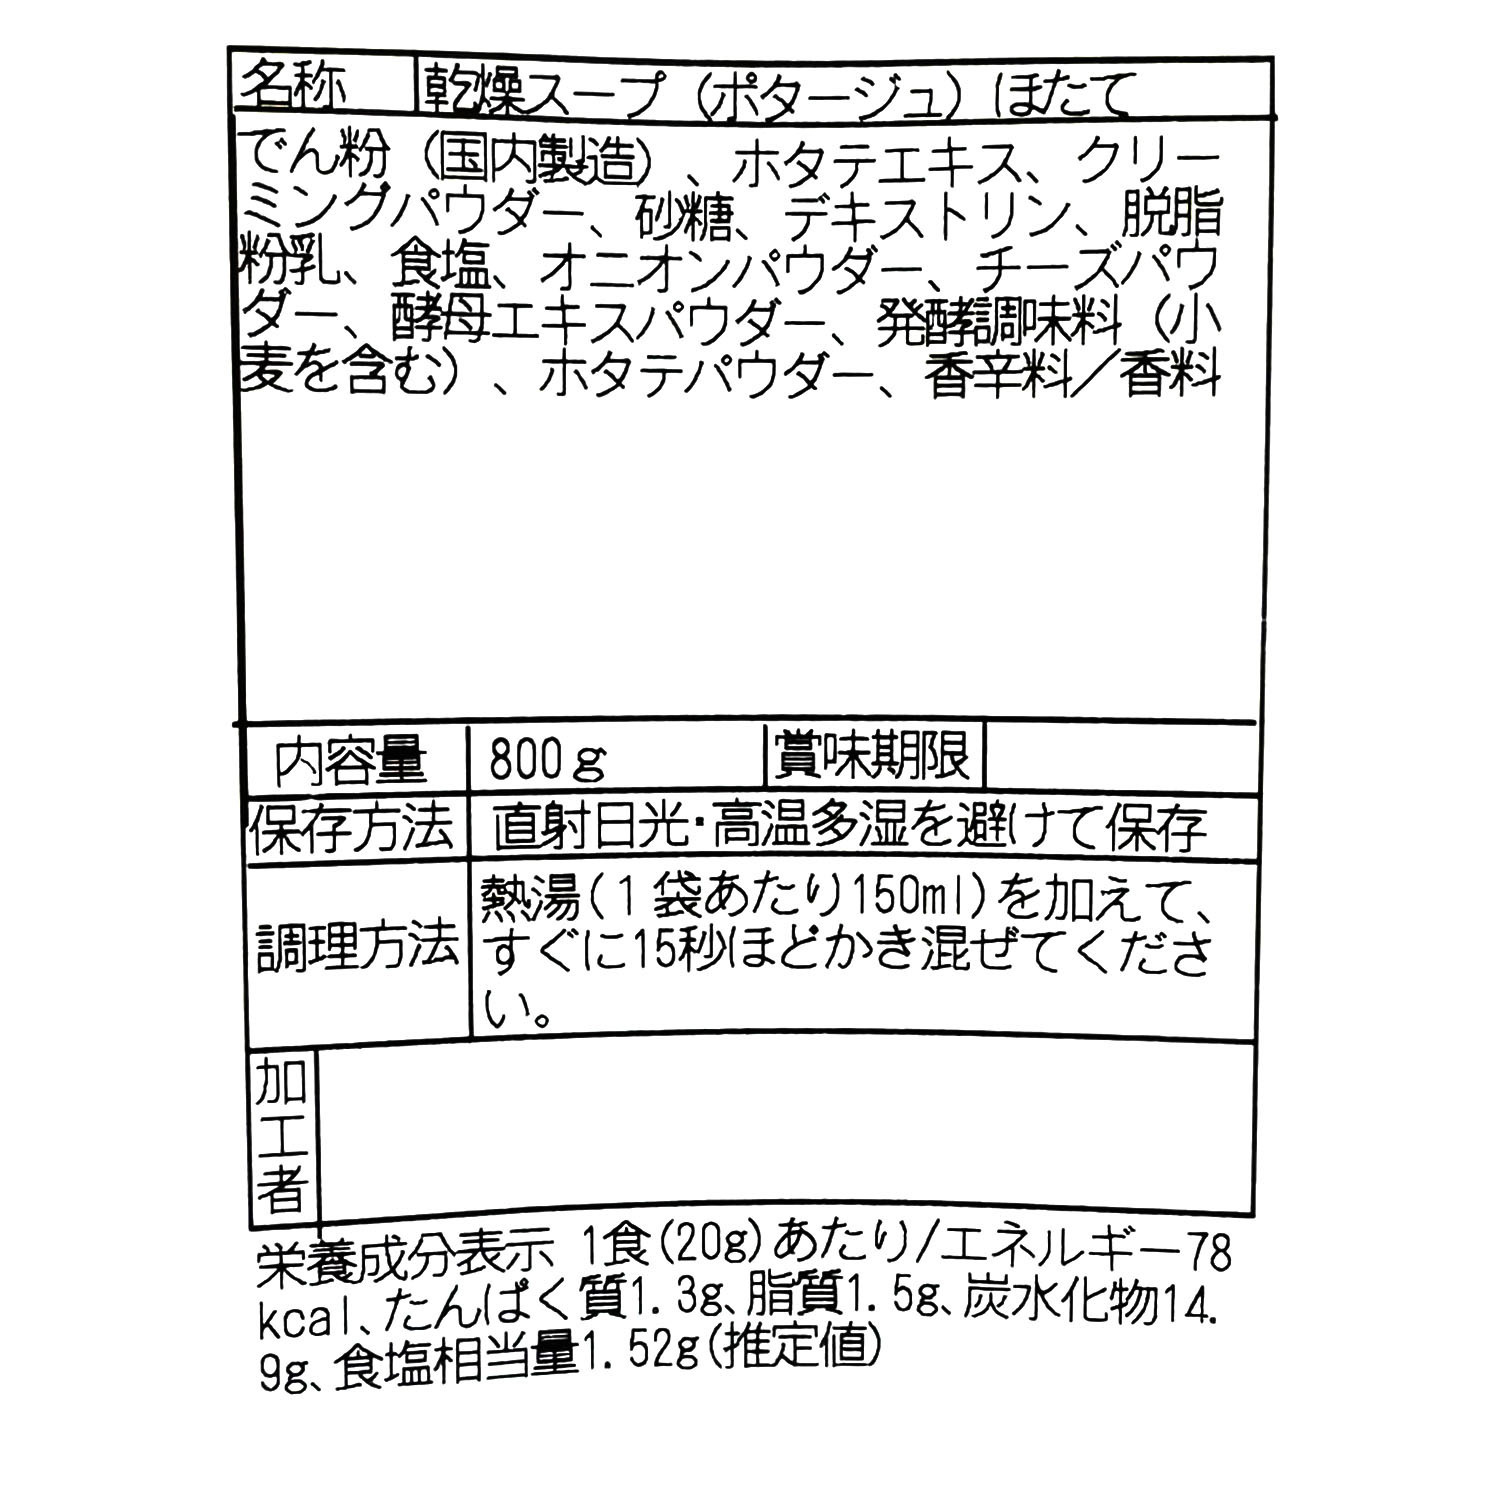 名称 乾燥スープ（ポタージュ）ほたて
でん粉（国内製造）、ホタテエキス、クリー
ミングパウダー、砂糖、デキストリン、脱脂
粉乳、食塩、オニオンパウダー、チーズパウ
ダー、酵母エキスパウダー、発酵調味料（小
麦を含む）、ホタテパウダー、香辛料／香料
内容量 800g 賞味期限
保存方法 直射日光・高温多湿を避けて保存
調理方法 熱湯(1袋あたり150ml)を加えて、
すぐに15秒ほどかき混ぜてくださ
い。
加工者
栄養成分表示 1食(20g)あたり/エネルギー78
kcal、たんぱく質1.3g、脂質1.5g、炭水化物14.
9g、食塩相当量1.52g(推定値)